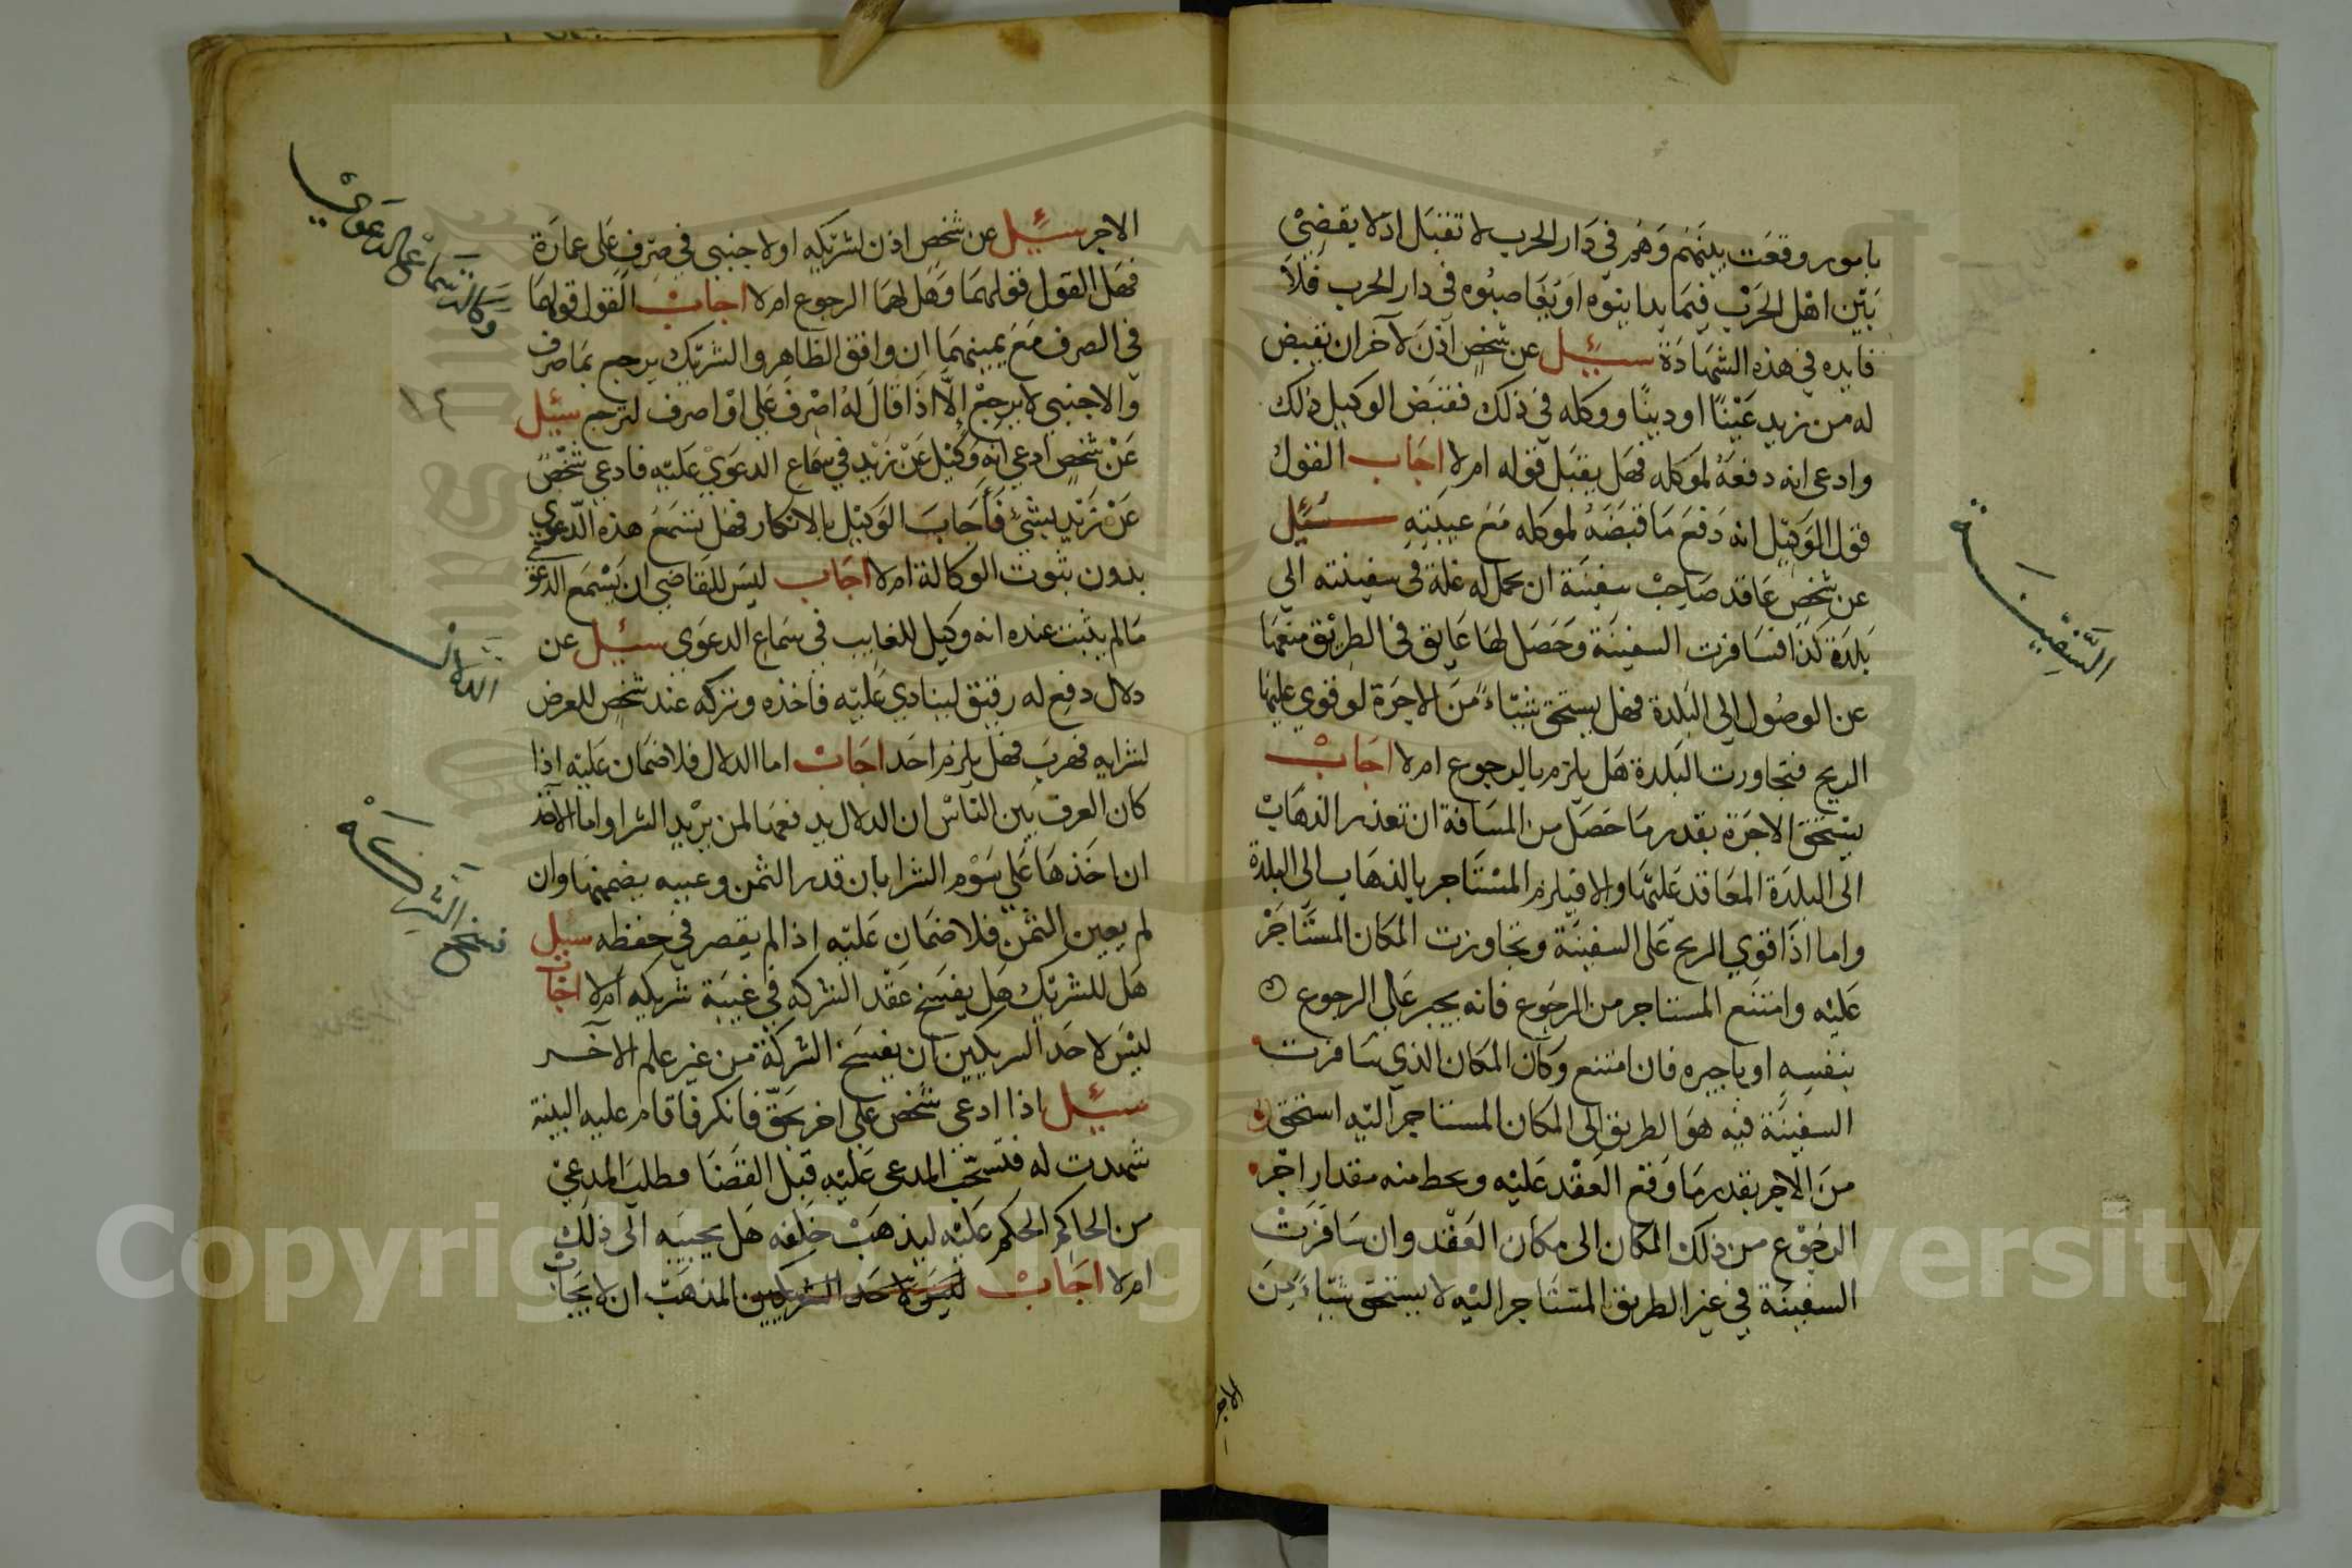 بامور وقعت بينهم وهم في دار الحرب لا تقبل اذ لا يقضي
بين اهل الحرب فيما يداينوه او يقاصبوه في دار الحرب فلا
فايده في هذه الشهادة سئيل عن شخص اذن لآخر ان يقبض
له من زيد عينا او دينا ووكله في ذلك فقبض الوكيل ذلك
وادعى انه دفعه لموكله فهل يقبل قوله ام لا اجاب القول
قول الوكيل انه دفع ما قبضه لموكله مع يمينه سئيل
عن شخص عاقد صاحب سفينة ان يحمل له غلة في سفينته الي
بلدة كذا فسافرت السفينة وحصل لها عايق في الطريق منعها
عن الوصول الى البلدة فهل يستحق شيئا من الاجرة لو قوي عليها
الريح فتجاورت البلدة هل يلزم بالرجوع ام لا اجاب
يستحق الاجرة بقدر ما حصل من المسافة ان تعذر الذهاب
الى البلدة المعاقد عليها والا فيلزم المستاجر بالذهاب الى البلدة
واما اذا قوي الريح على السفينة وتجاوزت المكان المستاجر
عليه وامتنع المستاجر من الرجوع فانه يجبر على الرجوع
بنفسه او باجيره فان امتنع وكان المكان الذي سافرت
السفينة فيه هو الطريق الى المكان المستاجر اليه استحق
من الاجر بقدر ما وقع العقد عليه ويحط منه مقدار اجر
الرجوع من ذلك المكان الى مكان العقد وان سافرت
السفينة في غير الطريق المستاجر اليه لا يستحق شيئا من
السفينة
الاجر
الاجر سئيل عن شخص اذن لشريكه او لاجنبي في صرف على عمارة
فهل القول قولهما وهل لهما الرجوع ام لا اجاب القول قولهما
في الصرف مع يمينهما ان وافق الظاهر والشريك يرجع بما صرف
والاجنبي لا يرجع الا اذا قال له اصرف علي او اصرف لترجع سئيل
عن شخص ادعى انه وكيل عن زيد في سماع الدعوي عليه فادعى شخص
عن زيد بشئ فأجاب الوكيل بالانكار فهل تسمع هذه الدعوي
بدون ثبوت الوكالة ام لا اجاب ليس للقاضي ان يسمع الدعوي
ما لم يثبت عنده انه وكيل للغايب في سماع الدعوي سئيل عن
دلال دفع له رقيق لينادي عليه فاخذه وتركه عند شخص للعرض
لشرايه فهرب فهل يلزم احد اجاب اما الدلال فلا ضمان عليه اذا
كان العرف بين الناس ان الدلال يدفعها لمن يريد الشرا واما الآخذ
ان اخذها على سوم الشرا بان قدر الثمن وعيبه يضمنها وان
لم يعين الثمن فلا ضمان عليه اذا لم يقصر في حفظه سيل
هل للشريك هل يفسخ عقد الشركه في غيبة شريكه ام لا اجاب
ليس لاحد الشريكين ان يفسخ الشركة من غير علم الآخر
سئيل اذا ادعى شخص على اخر بحق فانكر فاقام عليه البينة
شهدت له فتسحب المدعى عليه قبل القضا وطلب المدعي
من الحاكم الحكم عليه ليذهب خلفه هل يجيبه الى ذلك
ام لا اجاب ليس لاحد الشريكين المذهب ان لا يجاب
وكالة سماع الدعوي
١٤
الدلال
فسخ الشركة
Copyright © King Saud University